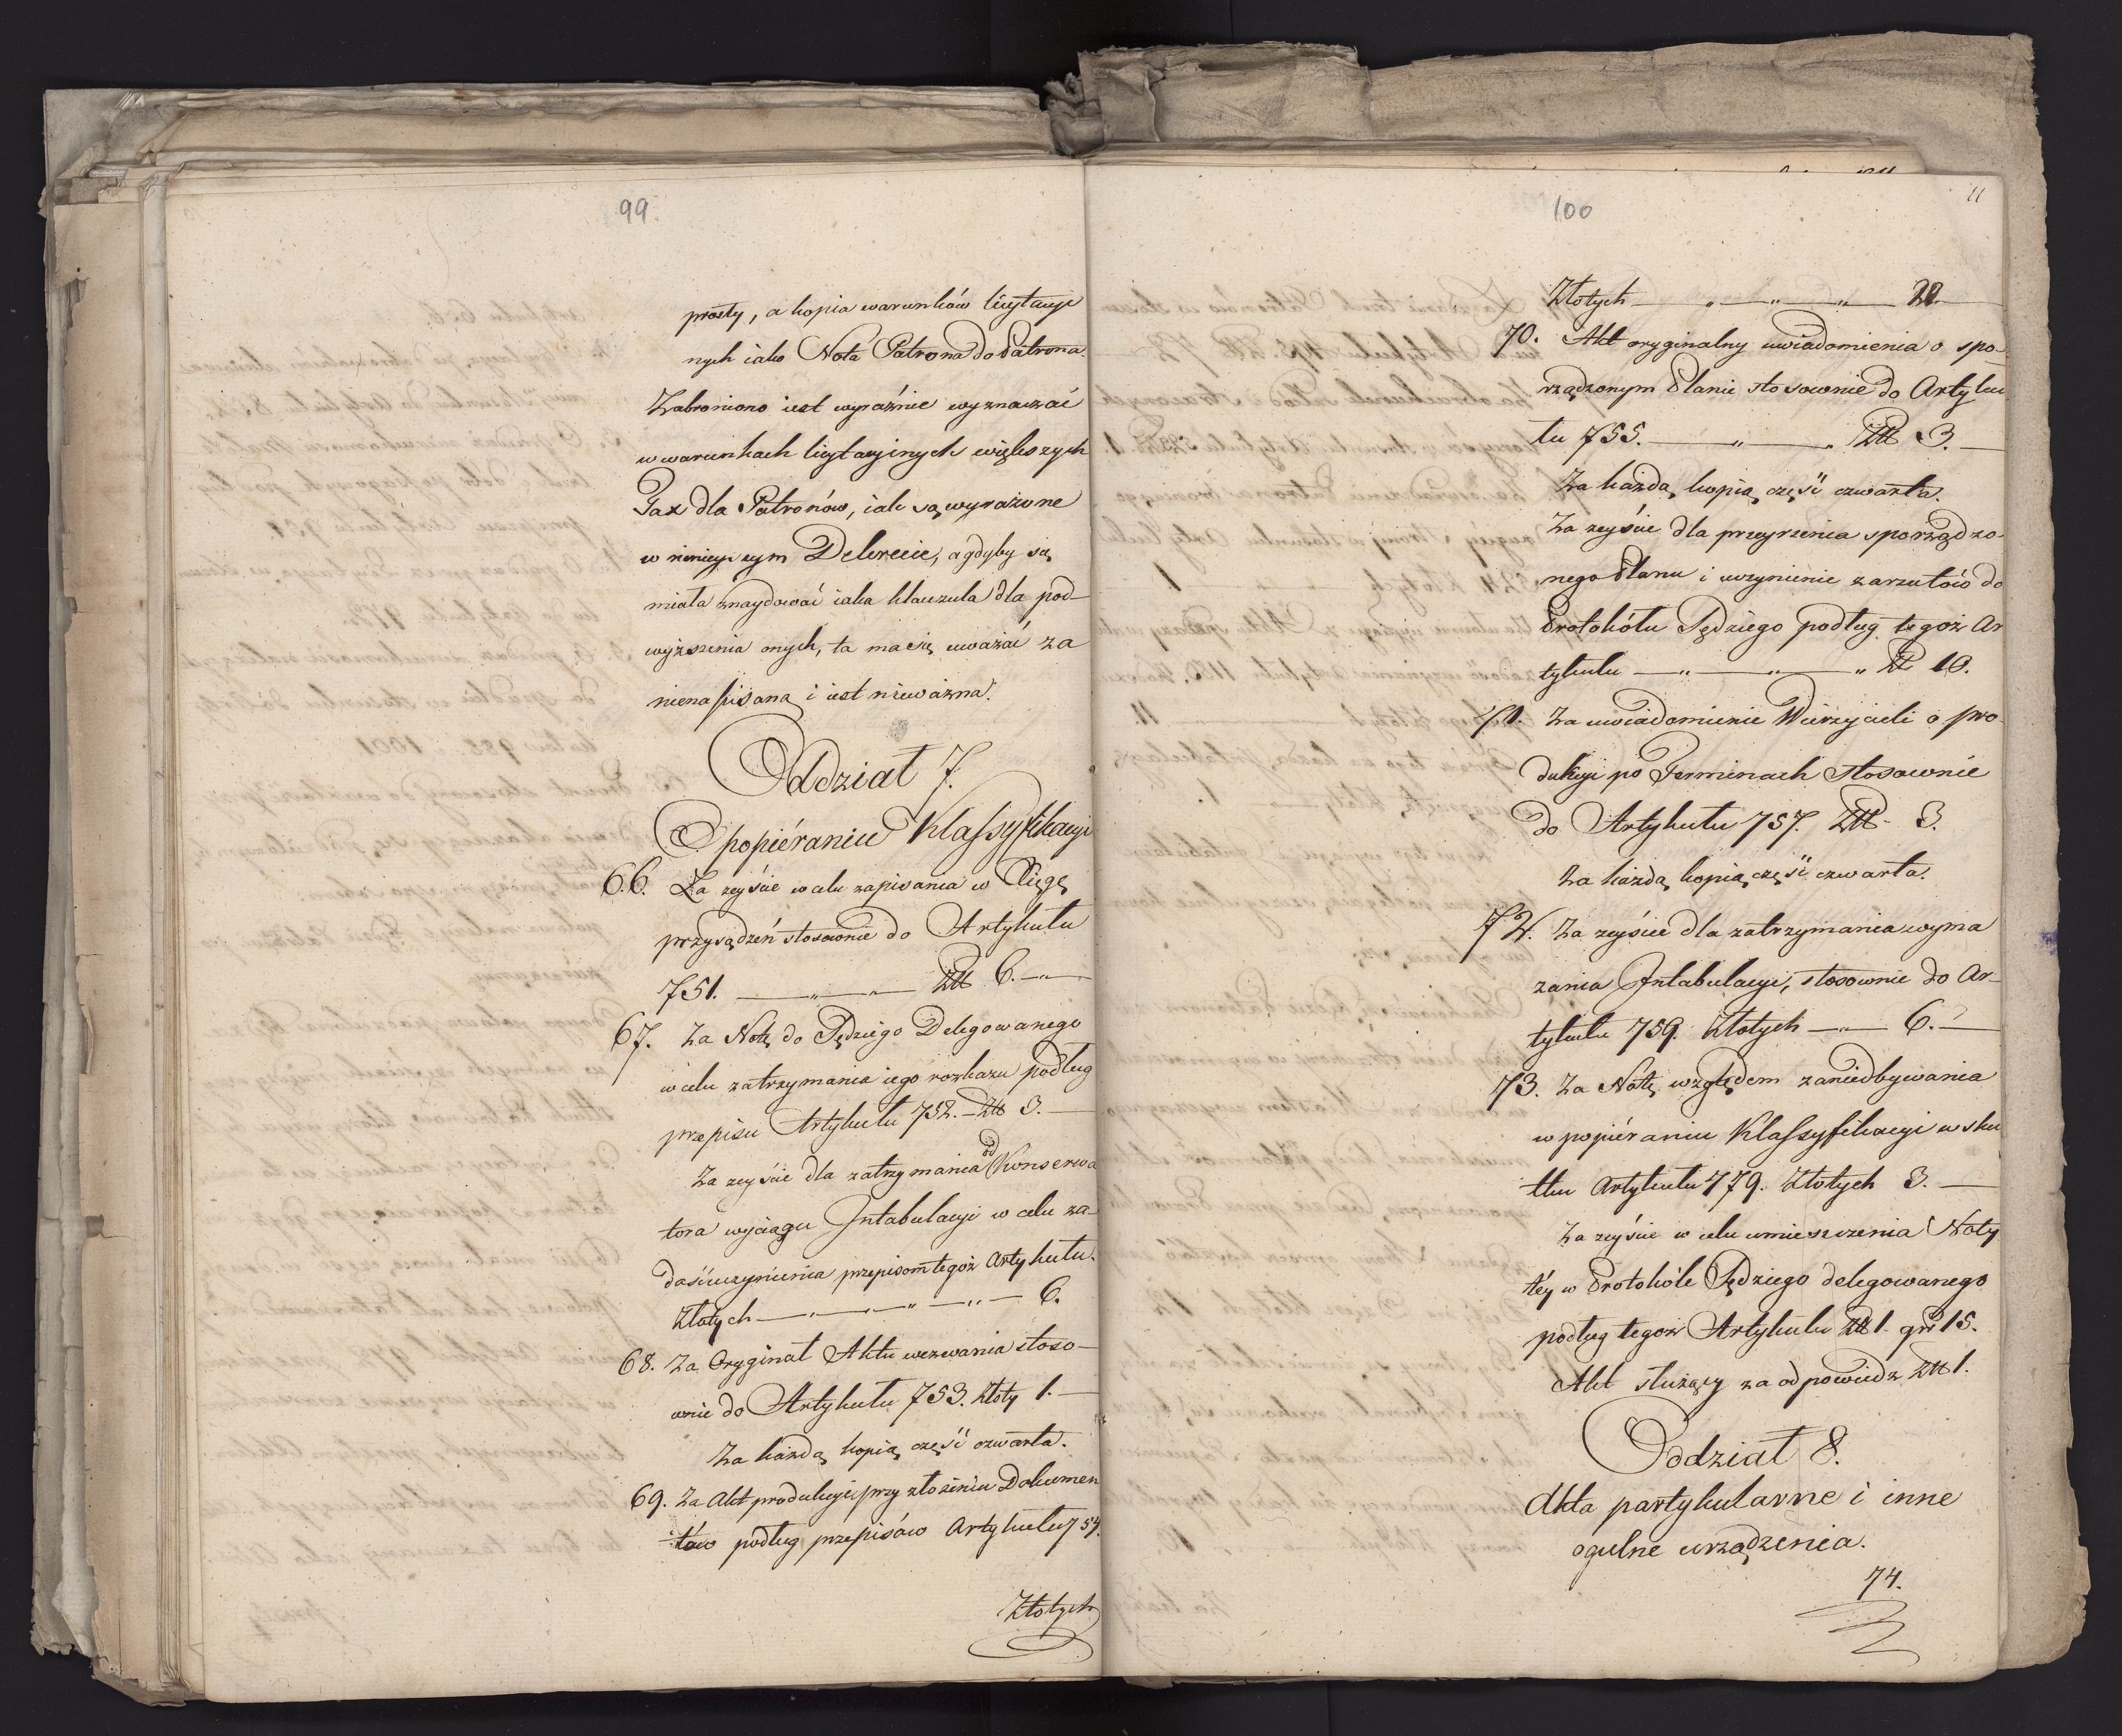 99
prosty, a kopia warunków licytacyi
nych iako Nota Patrona do Patrona.
Zabroniono iest wyraźnie wyznaczać
w warunkach licytacyinych większych
Tax dla Patronów, iak są wyrażone
w ninieyszym Dekrecie, a gdyby się
miała znaydować iaka klauzula dla pod-
wyższenia onych, ta ma się uważać za
nienapisaną i iest nieważna.
Oddział 7.
O popiéraniu Klassyfikacyi
66. Za zeyście w celu zapisania w Xięgę
przysądzeń stosownie do Artykułu
751. — „ — „ — Złł 6. — „ —
67. Za Notę do Sędziego Delegowanego
w celu zatrzymania iego rozkazu podług
przepisu Artykułu 752. — Złł 3. —
Za zeyście dla zatrzymania od Konserwa
tora wyciągu Intabulacyi w celu za-
dośćuczynienia przepisom tegoż Artykułu.
Złotych — „ — „ — „ — 6.
68. Za Oryginał Aktu wezwania stoso-
wnie do Artykułu 753. Złoty 1. —
Za każdą kopią część czwarta.
69. Za Akt produkcyi przy złożeniu Dokumen
tów podług przepisów Artykułu 754.
Złotych
11
100
Złotych — „ — „ — „ — 20.
70. Akt oryginalny uwiadomienia o spo-
rządzonym Planie stosownie do Artyku
łu 755. — „ — „ Złł 3. —
Za każdą kopią część czwarta.
Za zeyście dla przeyrzenia sporządzo
nego Planu i uczynienie zarzutów do
Protokółu Sędziego podług tegoż Ar
tykułu — „ — „ — „ Zł 10.
71. Za uwiadomienie Wierzycieli o pro
dukcyi po Terminach stosownie
do Artykułu 757. Złł 3.
Za każdą kopią część czwarta.
72. Za zeyście dla zatrzymania wyma
zania Intabulacyi, stosownie do Ar-
tykułu 759. Złotych — „ — 6. —
73. Za Notę względem zaniedbywania
w popiéraniu Klassyfikacyi w sku
tku Artykułu 779. Złotych 3. —
Za zeyście w celu umieszczenia Noty
téy w Protokóle Sędziego delegowanego
podług tegoż Artykułu Złł 1. gr 15.
Akt służący za odpowiedź Złł 1.
Oddział 8.
Akta partykularne i inne
ogulne urządzenia.
74.